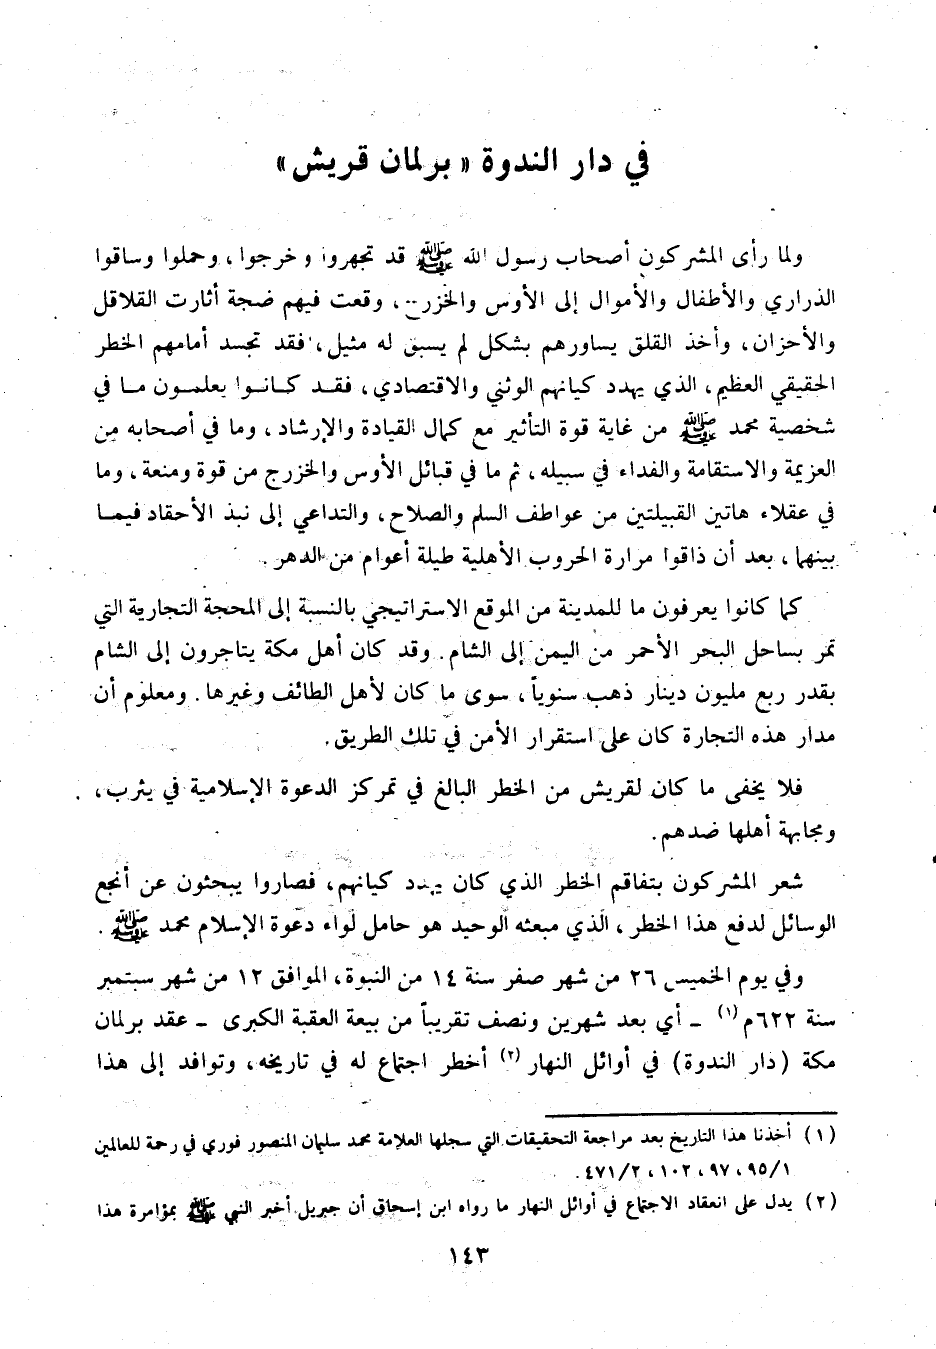 في دار الندوة « برلمان قريش »
ولما رأى المشركون أصحاب رسول الله ﷺ قد تجهروا وخرجوا ، وحملوا وساقوا
الذراري والأطفال والأموال إلى الأوس والخزرج ، وقعت فيهم ضجة أثارت القلاقل
والأحزان ، وأخذ القلق يساورهم بشكل لم يسبق له مثيل ، فقد تجسد أمامهم الخطر
الحقيقي العظيم ، الذي يهدد كيانهم الوثني والاقتصادي ، فقد كانوا يعلمون ما في
شخصية محمد ﷺ من غاية قوة التأثير مع كمال القيادة والإرشاد ، وما في أصحابه من
العزيمة والاستقامة والفداء في سبيله ، ثم ما في قبائل الأوس والخزرج من قوة ومنعة ، وما
في عقلاء هاتين القبيلتين من عواطف السلم والصلاح ، والتداعي إلى نبذ الأحقاد فيما
بينهما ، بعد أن ذاقوا مرارة الحروب الأهلية طيلة أعوام من الدهر .
كما كانوا يعرفون ما للمدينة من الموقع الاستراتيجي بالنسبة إلى المحجة التجارية التي
تمر بساحل البحر الأحمر من اليمن إلى الشام . وقد كان أهل مكة يتاجرون إلى الشام
بقدر ربع مليون دينار ذهب سنوياً ، سوى ما كان لأهل الطائف وغيرها . ومعلوم أن
مدار هذه التجارة كان على استقرار الأمن في تلك الطريق .
فلا يخفى ما كان لقريش من الخطر البالغ في تمركز الدعوة الإسلامية في يثرب ،
ومجابهة أهلها ضدهم .
شعر المشركون بتفاقم الخطر الذي كان يهدد كيانهم ، فصاروا يبحثون عن أنجع
الوسائل لدفع هذا الخطر ، الذي مبعثه الوحيد هو حامل لواء دعوة الإسلام محمد ﷺ .
وفي يوم الخميس ٢٦ من شهر صفر سنة ١٤ من النبوة ، الموافق ١٢ من شهر سبتمبر
سنة ٦٢٢م (١) ـ أي بعد شهرين ونصف تقريباً من بيعة العقبة الكبرى ـ عقد برلمان
مكة ( دار الندوة ) في أوائل النهار (٢) أخطر اجتماع له في تاريخه ، وتوافد إلى هذا
(١) أخذنا هذا التاريخ بعد مراجعة التحقيقات التي سجلها العلامة محمد سليمان المنصور فوري في رحمة للعالمين
٩٥/١ ، ٩٧ ، ١٠٢ ، ٤٧١/٢ .
(٢) يدل على انعقاد الاجتماع في أوائل النهار ما رواه ابن إسحاق أن جبريل أخبر النبي ﷺ بمؤامرة هذا
١٤٣